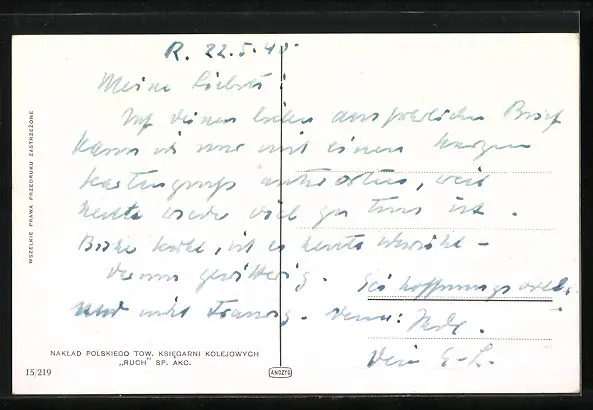 R. 22.5.40.
Meine Liebste!
Auf deinen lieben ausführlichen Brief
kann ich nur mit einem kurzen
Kartengruß antworten, weil
heute wieder viel zu tun ist.
ist es heute
gewitterig. Sei hoffnungsvoll,
und nicht traurig. Denn:
Dein E-L.
WSZELKIE PRAWA PRZEDRUKU ZASTRZEŻONE
NAKŁAD POLSKIEGO TOW. KSIĘGARNI KOLEJOWYCH
„RUCH" SP. AKC.
15/219
AKOZYG